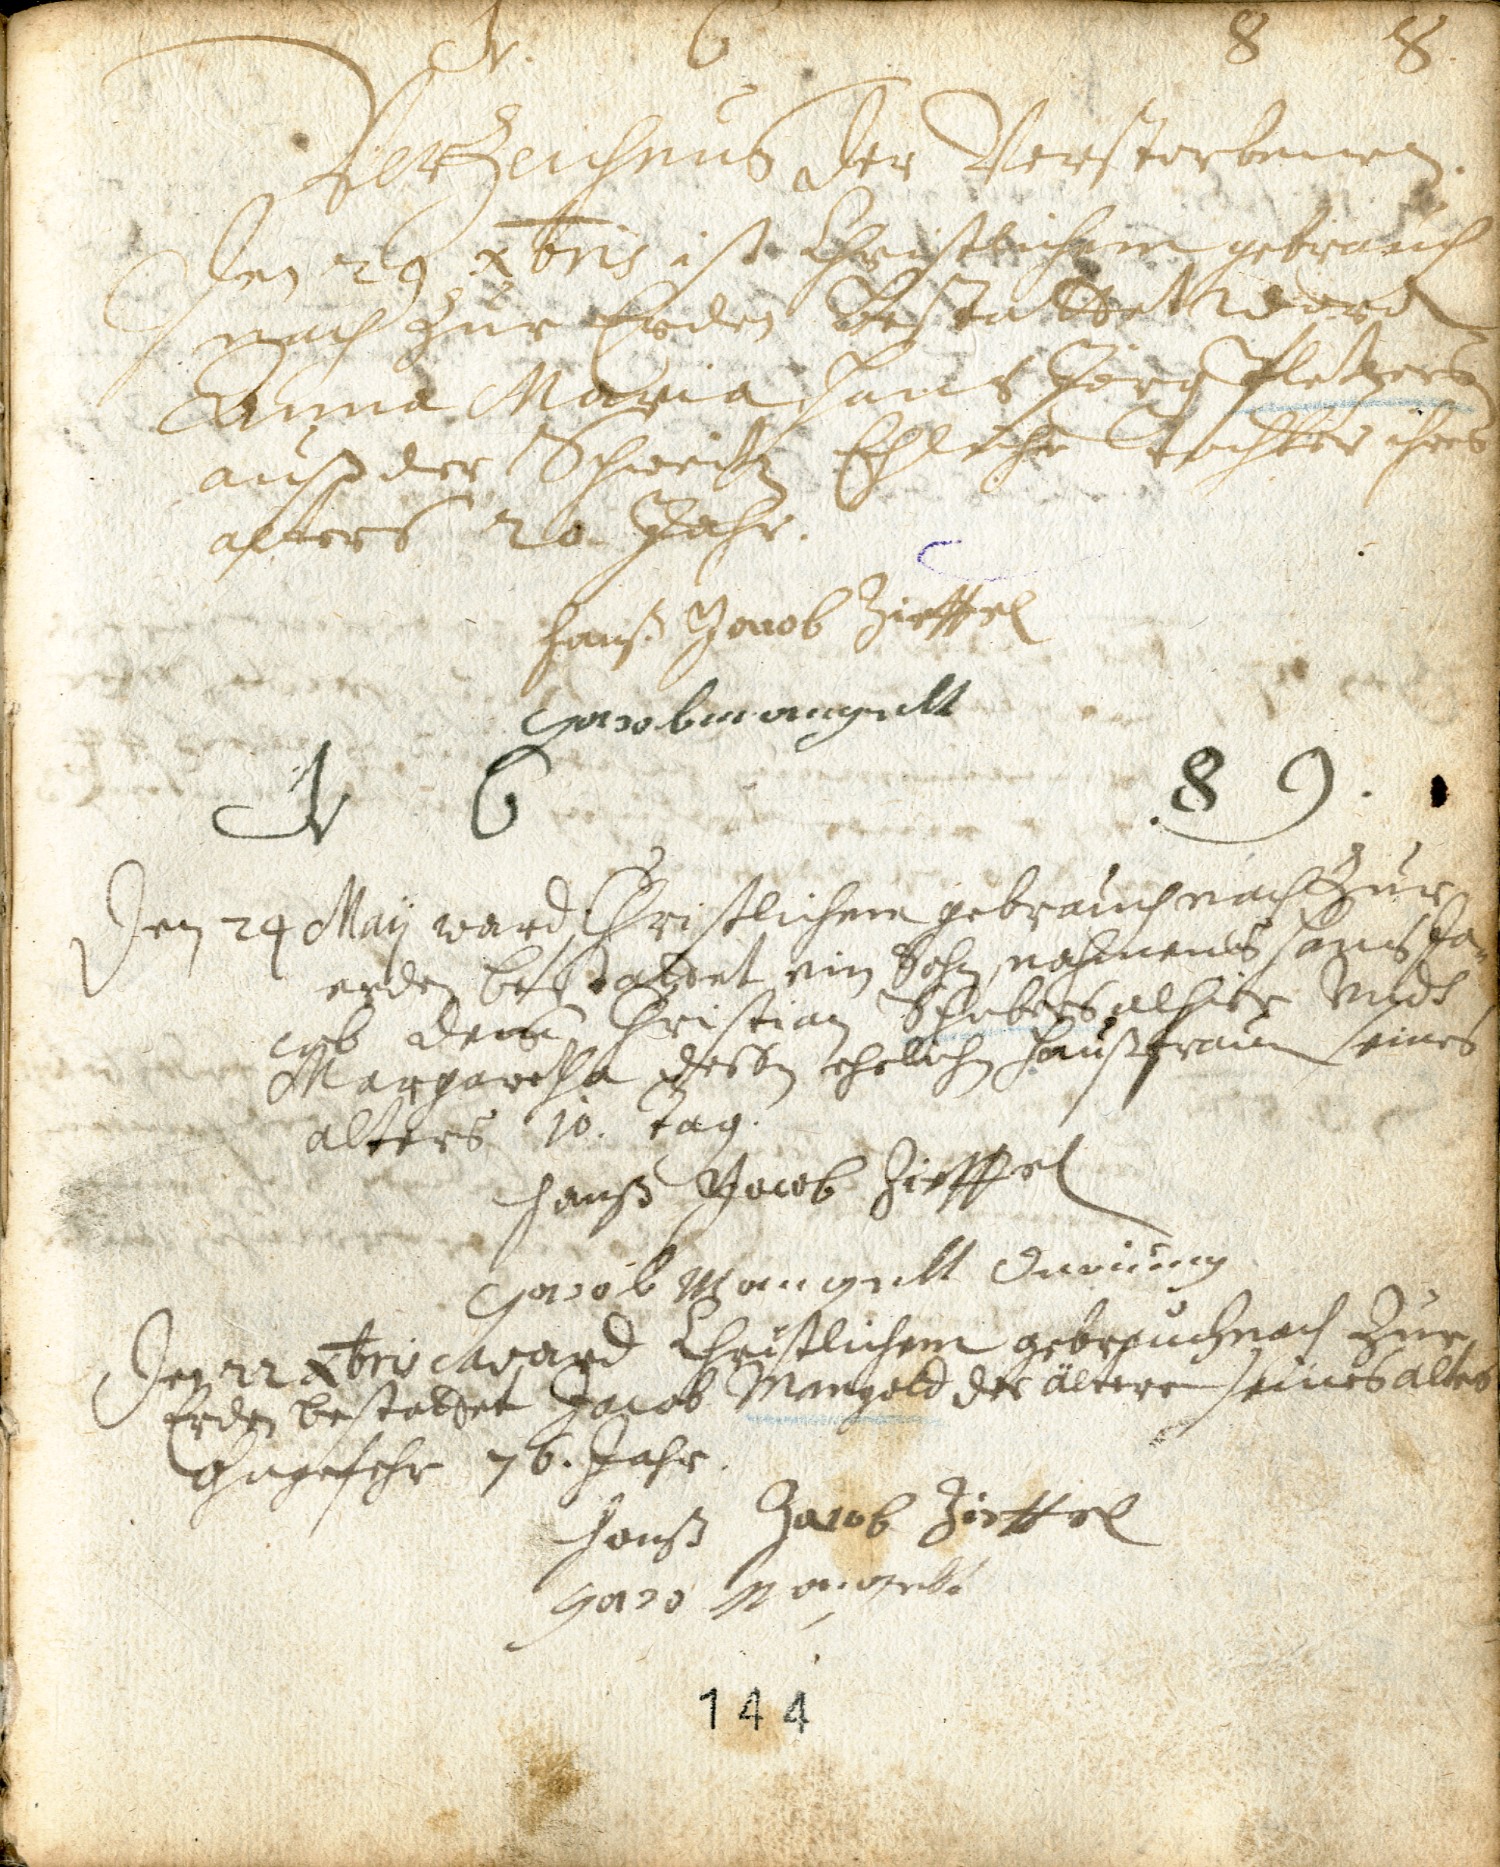 1 6 8 8
Verzeichnus der Verstorbenen.
Den 29 Xbris ist Christlichem gebrauch
nach zur Erden bestattet word
Anna Maria Hans Jörg Pletzers
auß der Schweitz Ehliche Tochter ihres
alters 20. Jahr.
Hanß Jacob Zieffel
Jacob mangelt
1 6 8 9.
Den 24 Maÿ ward Christlichem gebrauch nach zur
erden bestattet ein Sohn nahmens Hans Ja-
cob dem Christian alhier undt
Margaretha dessen ehelichen haußfrauen seines
alters 10. Tag.
Hanß Jacob Zieffel
Jacob Mangelt
Den 22 Xbris ward Christlichem gebrauch nach zur
Erden bestattet Jacob Mangold der ältere seines alters
Ungefehr 76. Jahr.
Hanß Jacob Zieffel
144